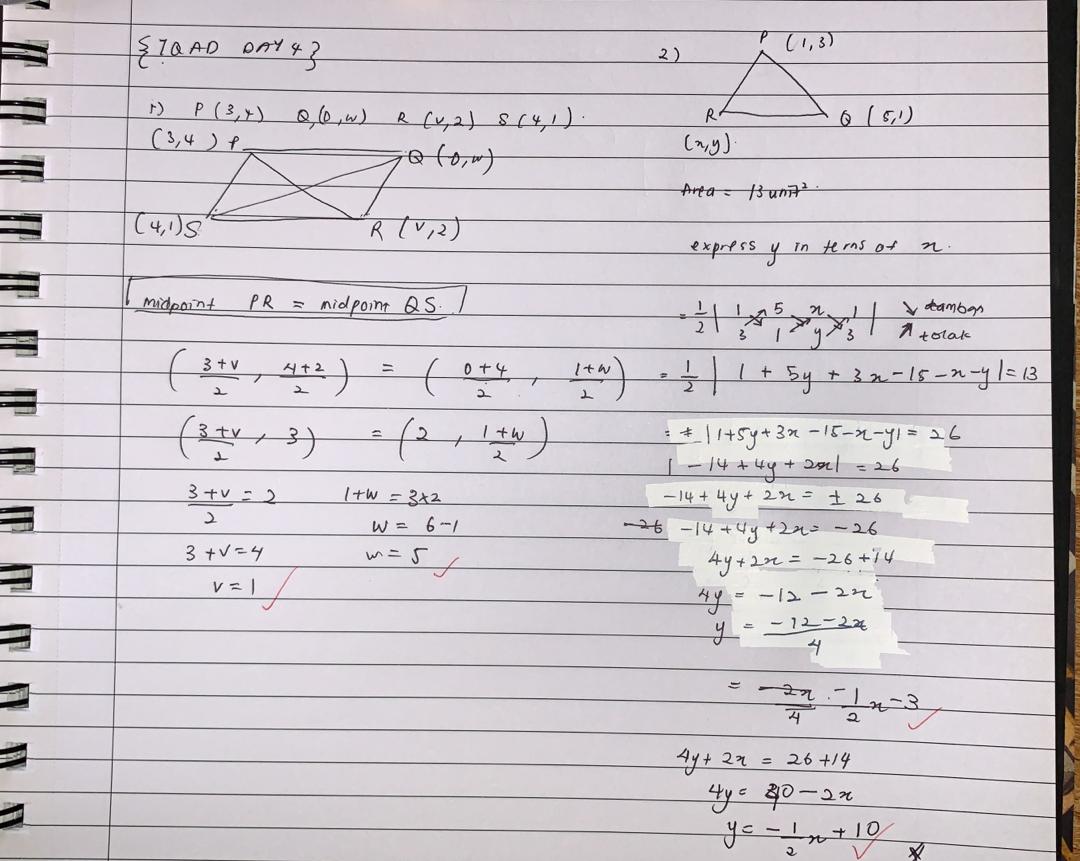 {TQAD DAY 4}
1) P (3,4) Q (0,w) R (v,2) S (4,1).
(3,4) P
Q (0,w)
(4,1) S
R (v,2)
midpoint PR = midpoint QS.
(3+v/2, 4+2/2) = (0+4/2, 1+w/2)
(3+v/2, 3) = (2, 1+w/2)
3+v/2 = 2 1+w = 3×2
w = 6-1
3+v=4 w = 5 ✓
v=1 ✓
2)
P (1,3)
R Q (5,1)
(x,y).
Area = 13 unit².
express y in terms of x.
= 1/2 | 1 5 x 1 | ↘ tambah
3 1 y 3 ↗ tolak
= 1/2 | 1 + 5y + 3x -15 -x -y | = 13
= ± |1+5y+3x -15-x-y| = 26
| -14 + 4y + 2x | = 26
-14 + 4y + 2x = ± 26
-26 -14 +4y +2x = -26
4y+2x = -26+14
4y = -12 - 2x
y = -12-2x/4
= -2x/4 . -1/2 x -3 ✓
4y + 2x = 26+14
4y = 40 - 2x
y = -1/2 x + 10 ✓